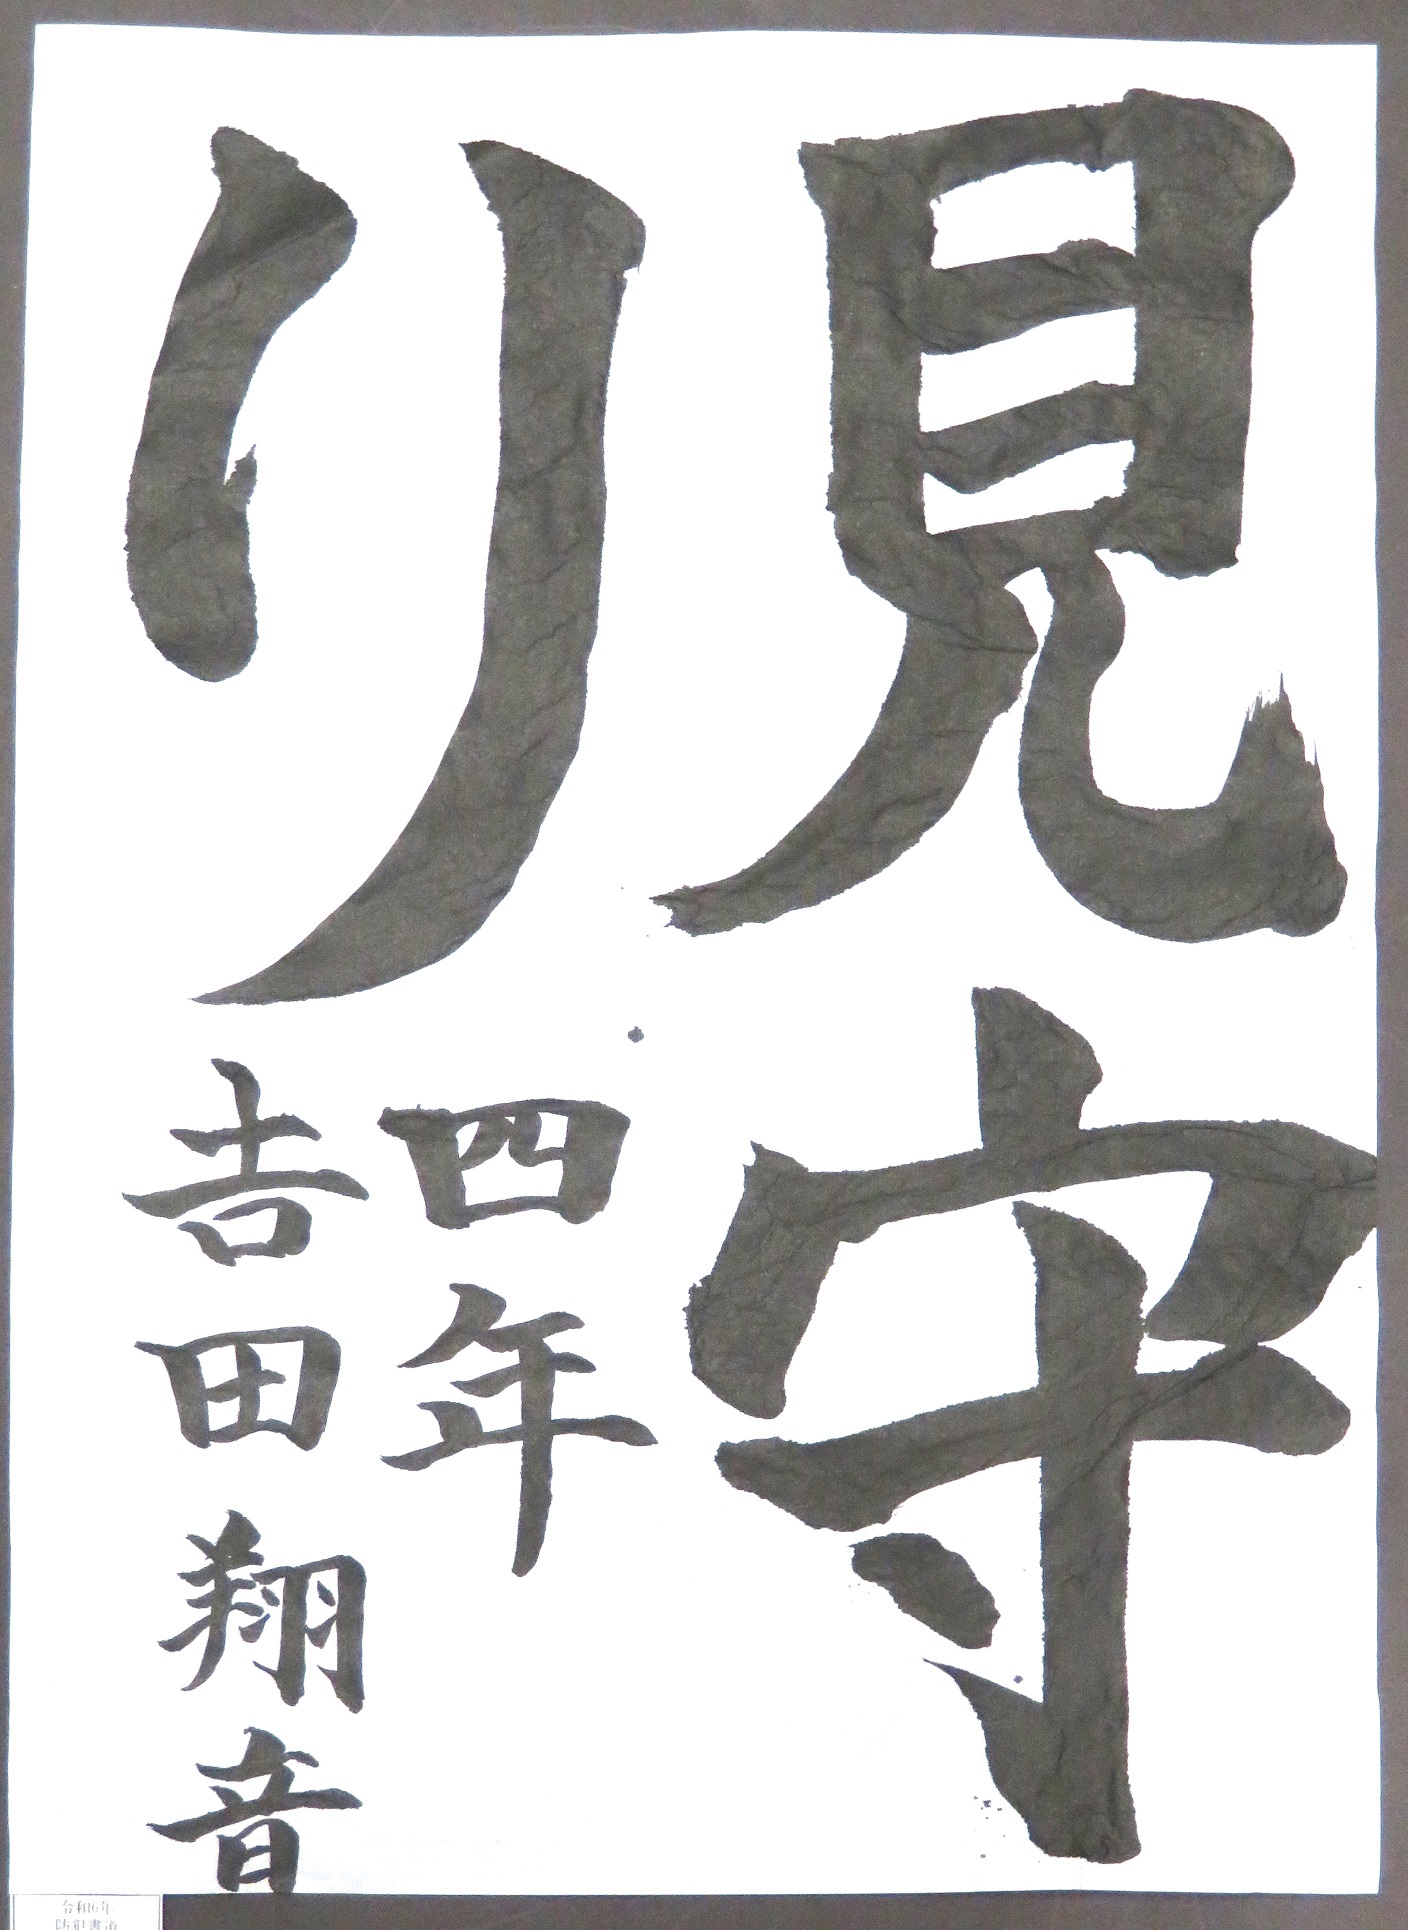 見守
り
四年
吉田翔音
令和6年
防犯書道